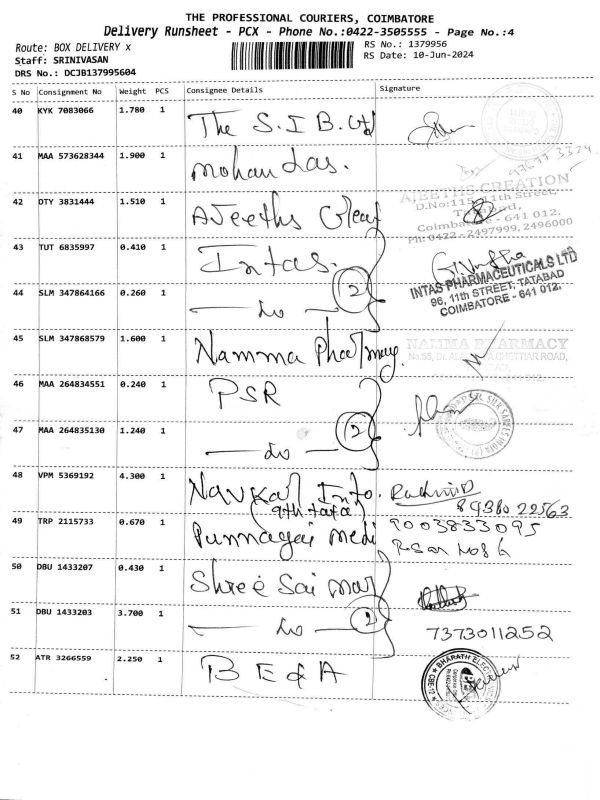 THE PROFESSIONAL COURIERS, COIMBATORE
Delivery Runsheet - PCX - Phone No.:0422-3505555 - Page No.:4
Route: BOX DELIVERY x
RS No.: 1379956
Staff: SRINIVASAN
RS Date: 10-Jun-2024
DRS No.: DCJB137995604
S No Consignment No Weight PCS Consignee Details Signature
40 KYK 7083066 1.780 1 The S.I.B. Ltd
41 MAA 573628344 1.900 1 Mohandas.
AJEETHS CREATION
42 OTY 3831444 1.510 1 Ajeeths Creat
D.No:115, 11th Street,
Tatabad,
Coimbatore - 641 012.
Ph: 0422 - 2497999, 2496000
43 TUT 6835997 0.410 1 Intas.
INTAS PHARMACEUTICALS LTD
96, 11th STREET, TATABAD
COIMBATORE - 641 012.
2
44 SLM 347864166 0.260 1 — do —
45 SLM 347868579 1.600 1 Namma Pharmacy
NAMMA PHARMACY
46 MAA 264834551 0.240 1 PSR
47 MAA 264835130 1.240 1 — do — 2
48 VPM 5369192 4.300 1 Navkar Info.
(9th tata)
49 TRP 2115733 0.670 1 Punnagai Medi 9003833095
50 DBU 1433207 0.430 1 Shree Sai Mar
51 DBU 1433203 3.700 1 — do — 2
7373011252
52 ATR 3266559 2.250 1 B E & A
BHARATH ELEC